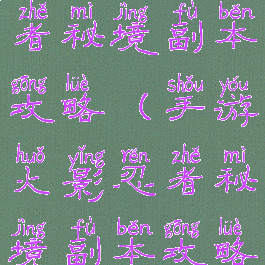 zhě mì jìng fù běn
者秘境副本
gōng lüè shǒu yóu
攻略（手游
huǒ yǐng rěn zhě mì
火影忍者秘
jìng fù běn gōng lüè
境副本攻略